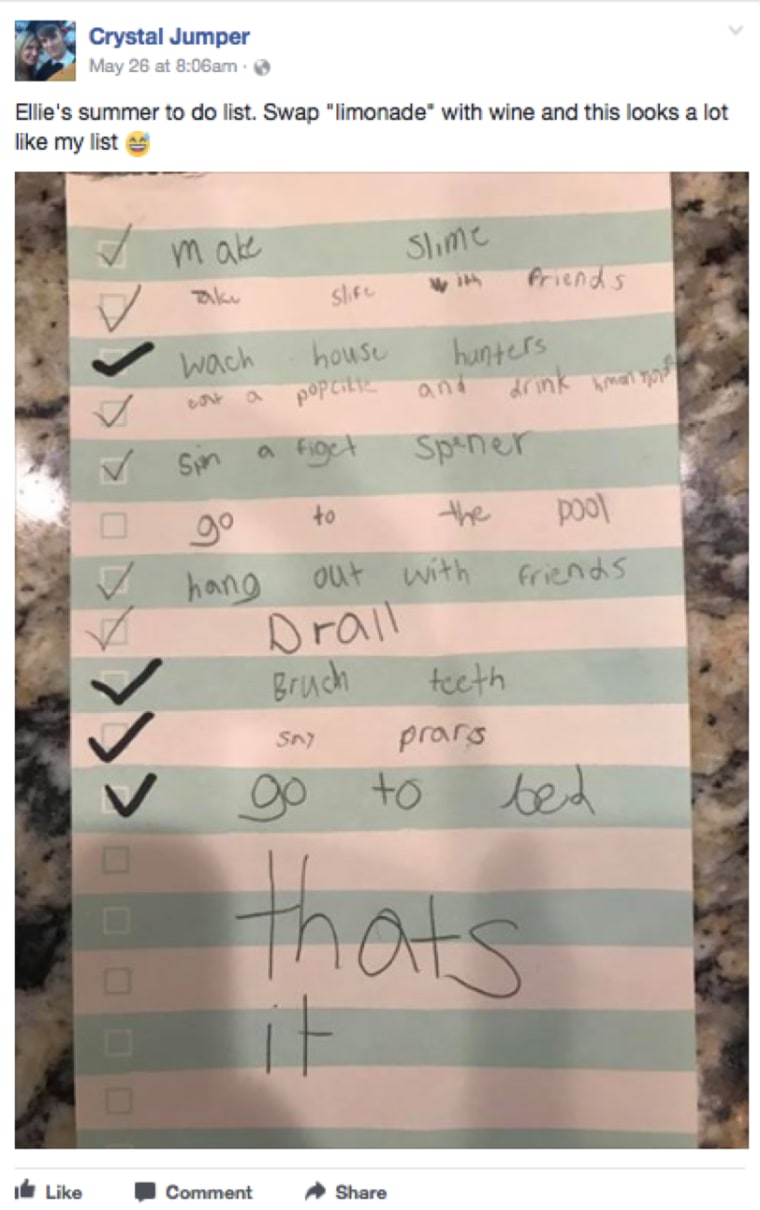 Crystal Jumper
May 26 at 8:06am
Ellie's summer to do list. Swap "limonade" with wine and this looks a lot
like my list 😅
make slime
Take slife with friends
wach house hunters
a popcille and drink
Spin a figet spener
go to the pool
hang out with friends
Drall
Bruch teeth
say prars
go to bed
thats
it
Like Comment Share